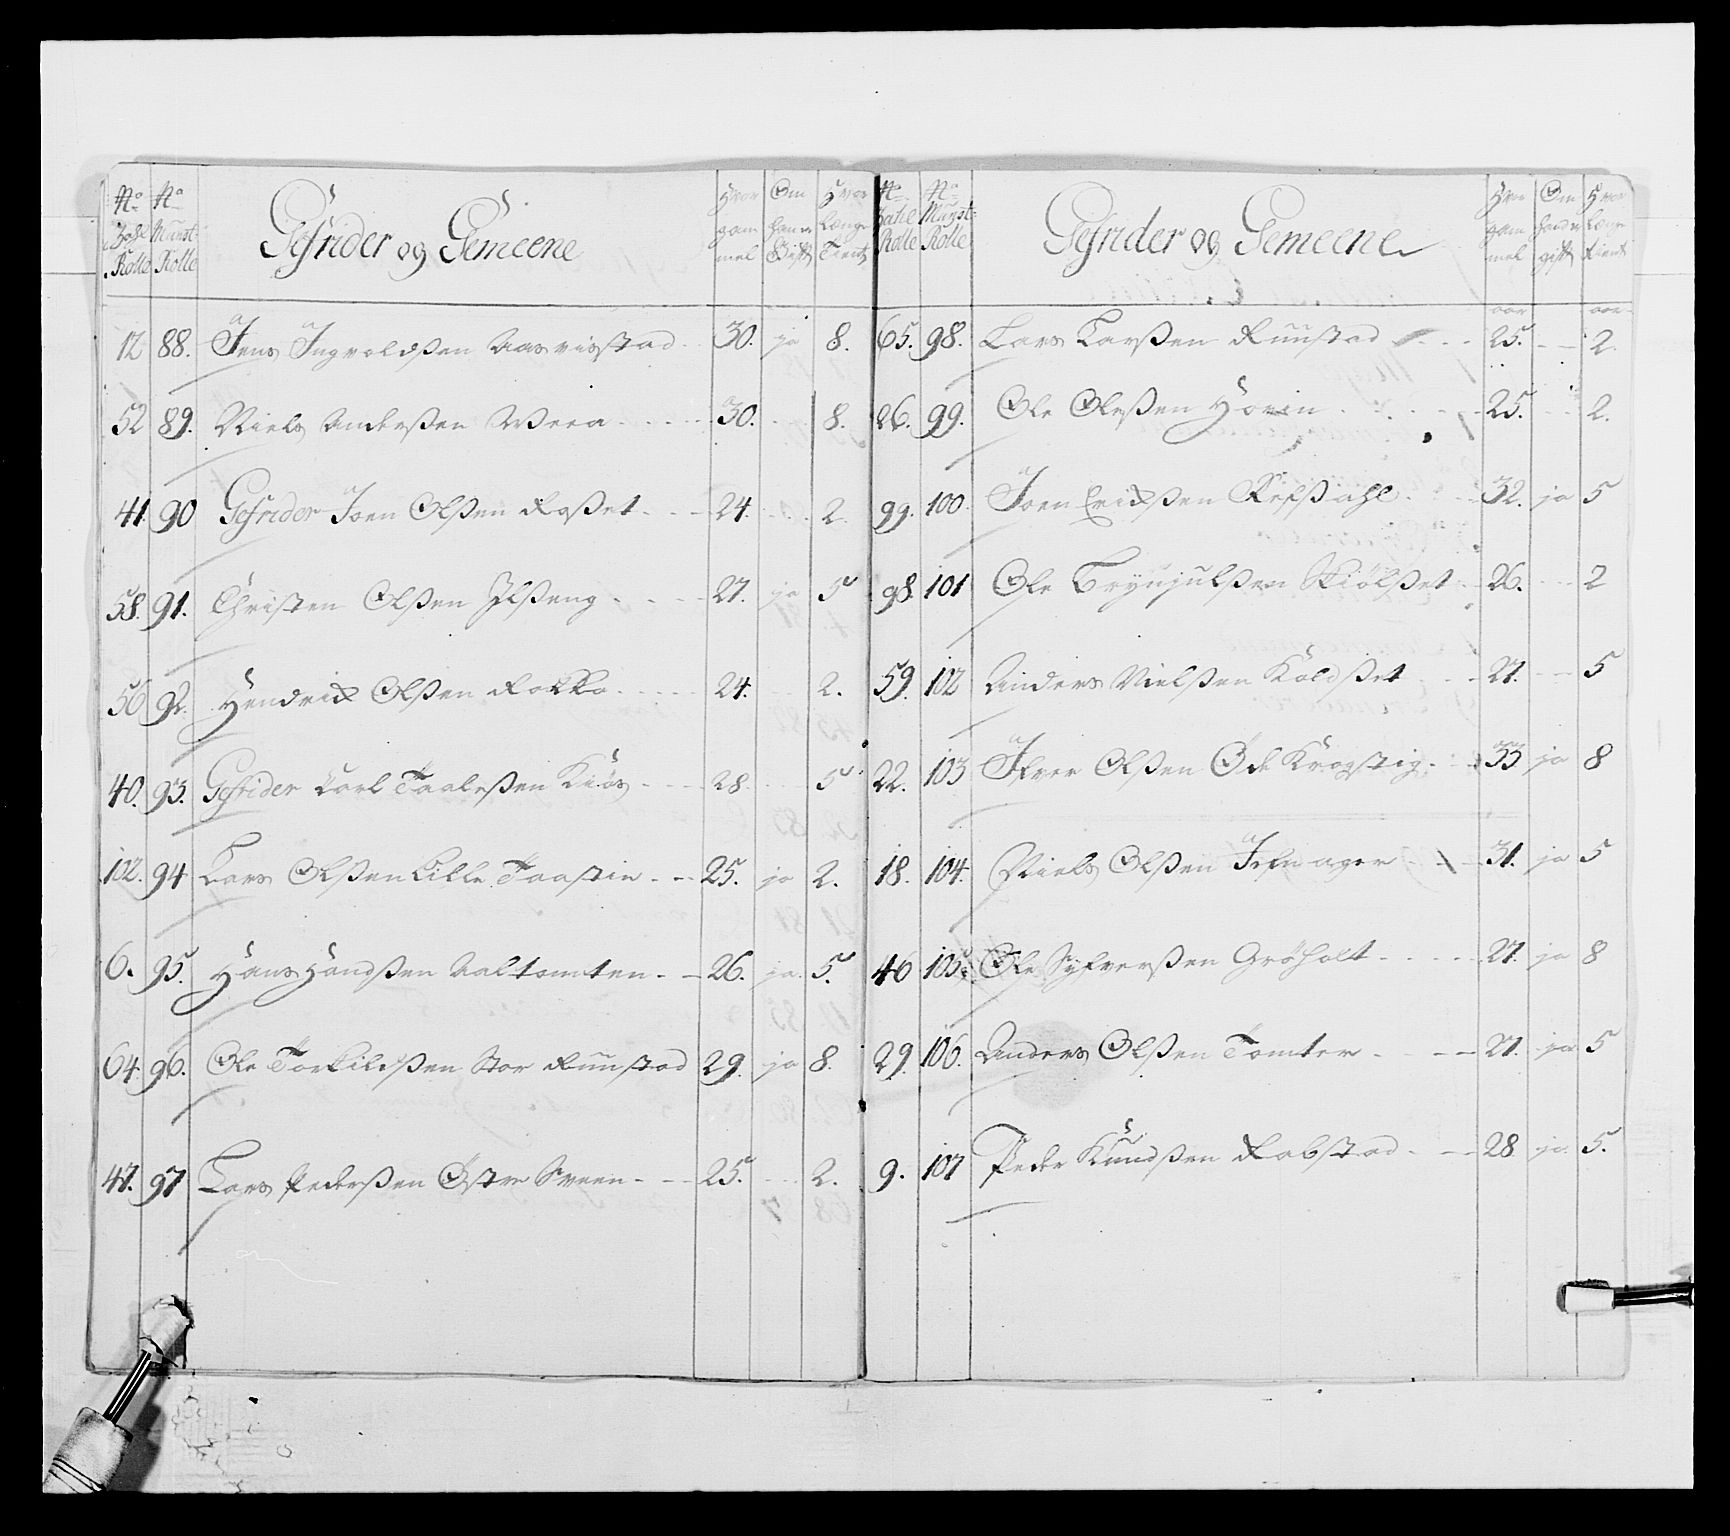 No Zahl Rolle No Munst: Rolle Gefrider og Gemeene Hvor gam mel Om hand er Gift Hvor Længe Tient
12 88. Jens Ingvoldsen Aasvistad 30. ja 8.
52 89. Niels Andersen Weea 30. 8.
41. 90 Gefrider Joen Olsen Roset 24. 2.
58. 91. Christen Olsen Ilseng 27. ja 5
56 92. Hendrix Olsen Rokko 24. 2.
40. 93. Gefrider Carl Taalesen Kiøs 28. 5
102. 94 Lars Olsen Lille Taastin 25. ja 2.
6. 95. Hans Handsen Aaltomten 26. ja. 5.
64. 96. Ole Torkildsen Stor Runstad 29. ja 8.
47. 97 Lars Pedersen Öster Sveen 25. 2.
No Zahl Rolle No Munst: Rolle Gefrider og Gemeene Hvor gam mel Om hand er gift Hvor Længe Tient
aar aar
65. 98. Lars Larsen Runstad 25. 2.
26. 99. Ole Olesen Hovin 25. 2.
99. 100. Joen Erixsen Refsahl 32. ja 5
98. 101 Ole Brynjulsen Skiölset 26. 2
59. 102 Anders Nielsen Koldset 27. 5
22. 103 Ifver Olsen Öde Krogstig 33 ja 8
18. 104. Niels Olsen Jefnager 31. ja 5
46 105. Ole Syfversen Gröholt 27. ja 8
29. 106. Anders Olsen Tomter 27. ja 5
9. 107 Peder Knudsen Rabstad 28 ja. 5.